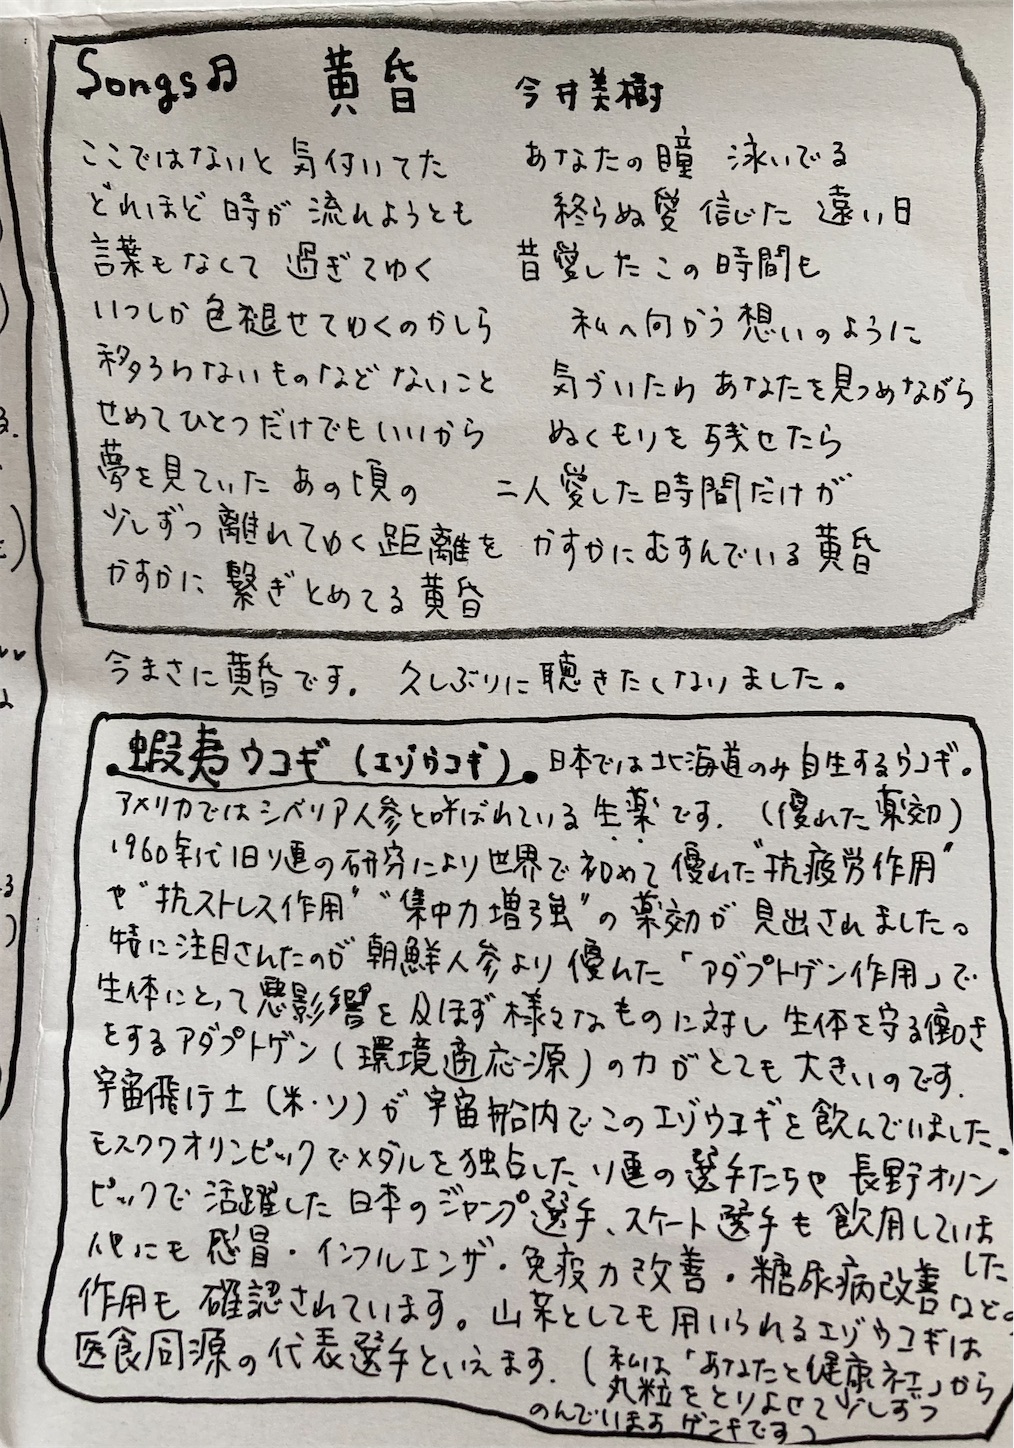 Songs♫ 黄昏 今井美樹
ここではないと 気付いてた
どれほど 時が 流れようとも
言葉もなくて 過ぎてゆく
いつしか 色褪せてゆくのかしら
移ろわないものなど ないこと
せめてひとつだけでもいいから
夢を見ていた あの頃の
少しずつ 離れてゆく 距離を
かすかに 繋ぎとめてる 黄昏
あなたの瞳 泳いでる
終らぬ愛 信じた 遠い日
昔愛したこの時間も
私へ向かう想いのように
気づいたわ あなたを見つめながら
ぬくもりを 残せたら
二人愛した時間だけが
かすかにむすんでいる 黄昏
今まさに黄昏です。 久しぶりに聴きたくなりました。
蝦夷ウコギ(エゾウコギ) 日本では北海道のみ自生するウコギ。
アメリカではシベリア人参と呼ばれている生薬です. (優れた薬効)
1960年代旧ソ連の研究により世界で初めて優れた“抗疲労作用”
や“抗ストレス作用”“集中力増強”の薬効が見出されました。
特に注目されたのが朝鮮人参より優れた「アダプトゲン作用」で
生体にとって悪影響を及ぼす様々なものに対し生体を守る働き
をするアダプトゲン(環境適応源)の力がとても大きいのです.
宇宙飛行士(米・ソ)が宇宙船内でこのエゾウコギを飲んでいました.
モスクワオリンピックでメダルを独占したソ連の選手たちや長野オリン
ピックで活躍した日本のジャンプ選手、スケート選手も飲用していま
した
他にも感冒・インフルエンザ・免疫力改善・糖尿病改善など。
作用も確認されています。山菜としても用いられるエゾウコギは
医食同源の代表選手といえます. (私は「あなたと健康社」から
丸粒をとりよせて少しずつ
のんでいます ゲンキですっ